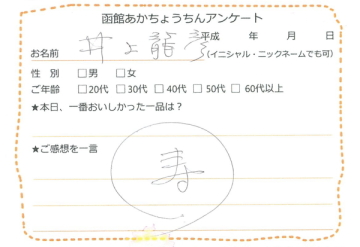 函館あかちょうちんアンケート
平成 年 月 日
お名前 井上龍彦 (イニシャル・ニックネームでも可)
性 別 □男 □女
ご年齢 □20代 □30代 □40代 □50代 □60代以上
★本日、一番おいしかった一品は?
★ご感想を一言
寿